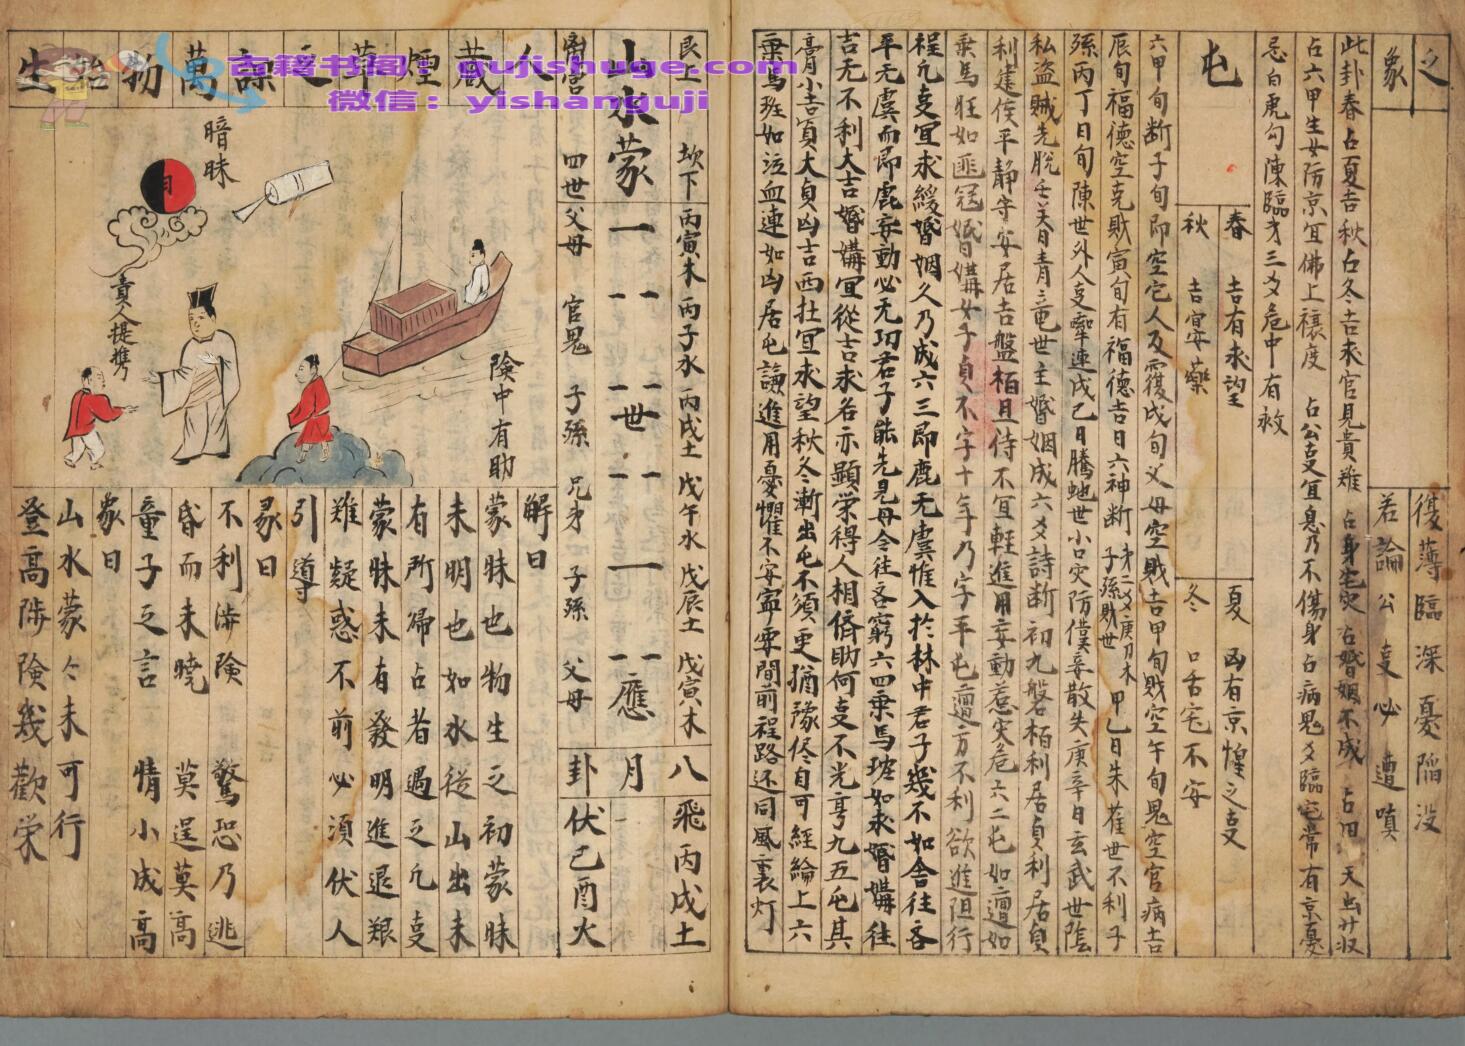 之
象
復薄臨深憂陷没
若論公吏必遭嗔
此卦春占夏吉秋占冬吉求官見貴難
占六甲生女防京宜佛上禳度
忌白虎句陳臨才三爻危中有救
屯
春 吉有求望
秋 吉宴藥
夏 凶有京惶之变
冬 口舌宅不安
六甲旬断子旬即空宅人及覆戌旬父母空戝吉甲旬戝空午旬鬼空官病吉
辰旬福德空克財寅旬有福德吉日六神断
子孫財世
甲乙日朱雀世不利子
孫丙丁日旬陳世外人变牽連戊己日騰虵世小口灾防僕妾散失庚辛日玄武世陰
私盗賊先脱壬关日青竜世主婚姻成六爻詩断初九磐栢利居貞利居貞
利建侯平靜守安居吉盤栢且待不宜輕進用妄動惹灾危六二屯如邅如
乘馬班如匪冦婚媾女子貞不字十年乃字平屯邅方不利欲進阻行
程凢变宜求緩婚姻久乃成六三即鹿无虞惟入於林中君子幾不如舍往吝
平无虞而即鹿妄動必无功君子能先見毋令往吝窮六四乘馬班如求婚媾往
吉无不利大吉婚媾宜從吉求名亦顯栄得人相儕助何变不光亨九五屯其
膏小吉貞大貞凶吉西壮宜求望秋冬漸出屯不須更猶豫侭自可經綸上六
乘馬班如泣血連如凶居屯謙進用憂懼不安寧要間前程路还同風裏灯
艮上 坎下 丙寅木 丙子水 丙戌土 戊午火 戊辰土 戊寅木
山水蒙
世
應
四世 父母 官鬼 子孫 兄弟 子孫 父母
八月卦
飛丙戌土
伏己酉火
人藏煙草之諒萬物始生
暗昧
月
貴人提携
險中有助
解曰
蒙昧也物生之初蒙昧
未明也如水從山出未
有所歸占者遇之凢变
蒙昧未有發明進退艱
難疑惑不前必須伏人
引導
彖曰
不利涉險 驚恐乃逃
昏而未曉 莫逞莫高
童子之言 情小成高
象曰
山水蒙々未可行
登高陟險幾歡栄
古籍书阁：gujishuge.com
微信：yishanguji